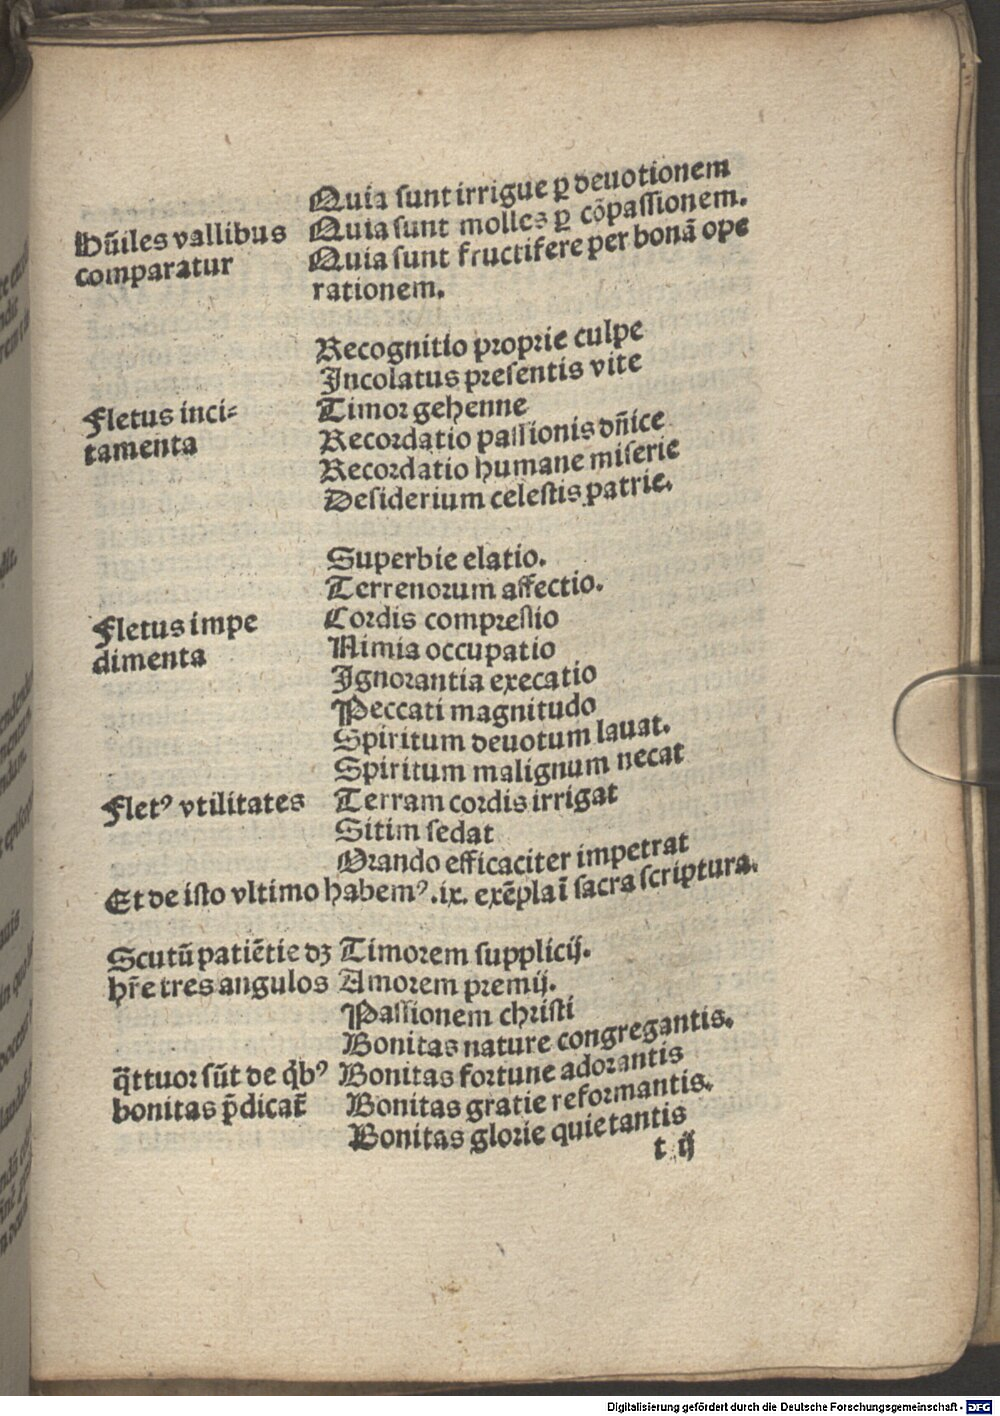 Quia sunt irrigue ꝑ deuotionem
Hūiles vallibus Quia sunt molles ꝑ cōpassionem.
comparatur Quia sunt fructifere per bonā ope
rationem.
Recognitio proprie culpe
Incolatus presentis vite
Fletus inci- Timor gehenne
tamenta Recordatio passionis dn̄ice
Recordatio humane miserie
Desiderium celestis patrie.
Superbie elatio.
Terrenorum affectio.
Fletus impe Cordis compressio
dimenta Nimia occupatio
Ignorantia execatio
Peccati magnitudo
Spiritum deuotum lauat.
Spiritum malignum necat
Fletꝰ vtilitates Terram cordis irrigat
Sitim sedat
Orando efficaciter impetrat
Et de isto vltimo habemꝰ .ix. exēpla ī sacra scriptura.
Scutū patiētie dꝫ Timorem supplicij.
hr̄e tres angulos Amorem premij.
Passionem christi
Bonitas nature congregantis.
q̄ttuor sūt de q̄bꝰ Bonitas fortune adorantis
bonitas p̄dicat̄ Bonitas gratie reformantis.
Bonitas glorie quietantis
t ij
Digitalisierung gefördert durch die Deutsche Forschungsgemeinschaft - DFG